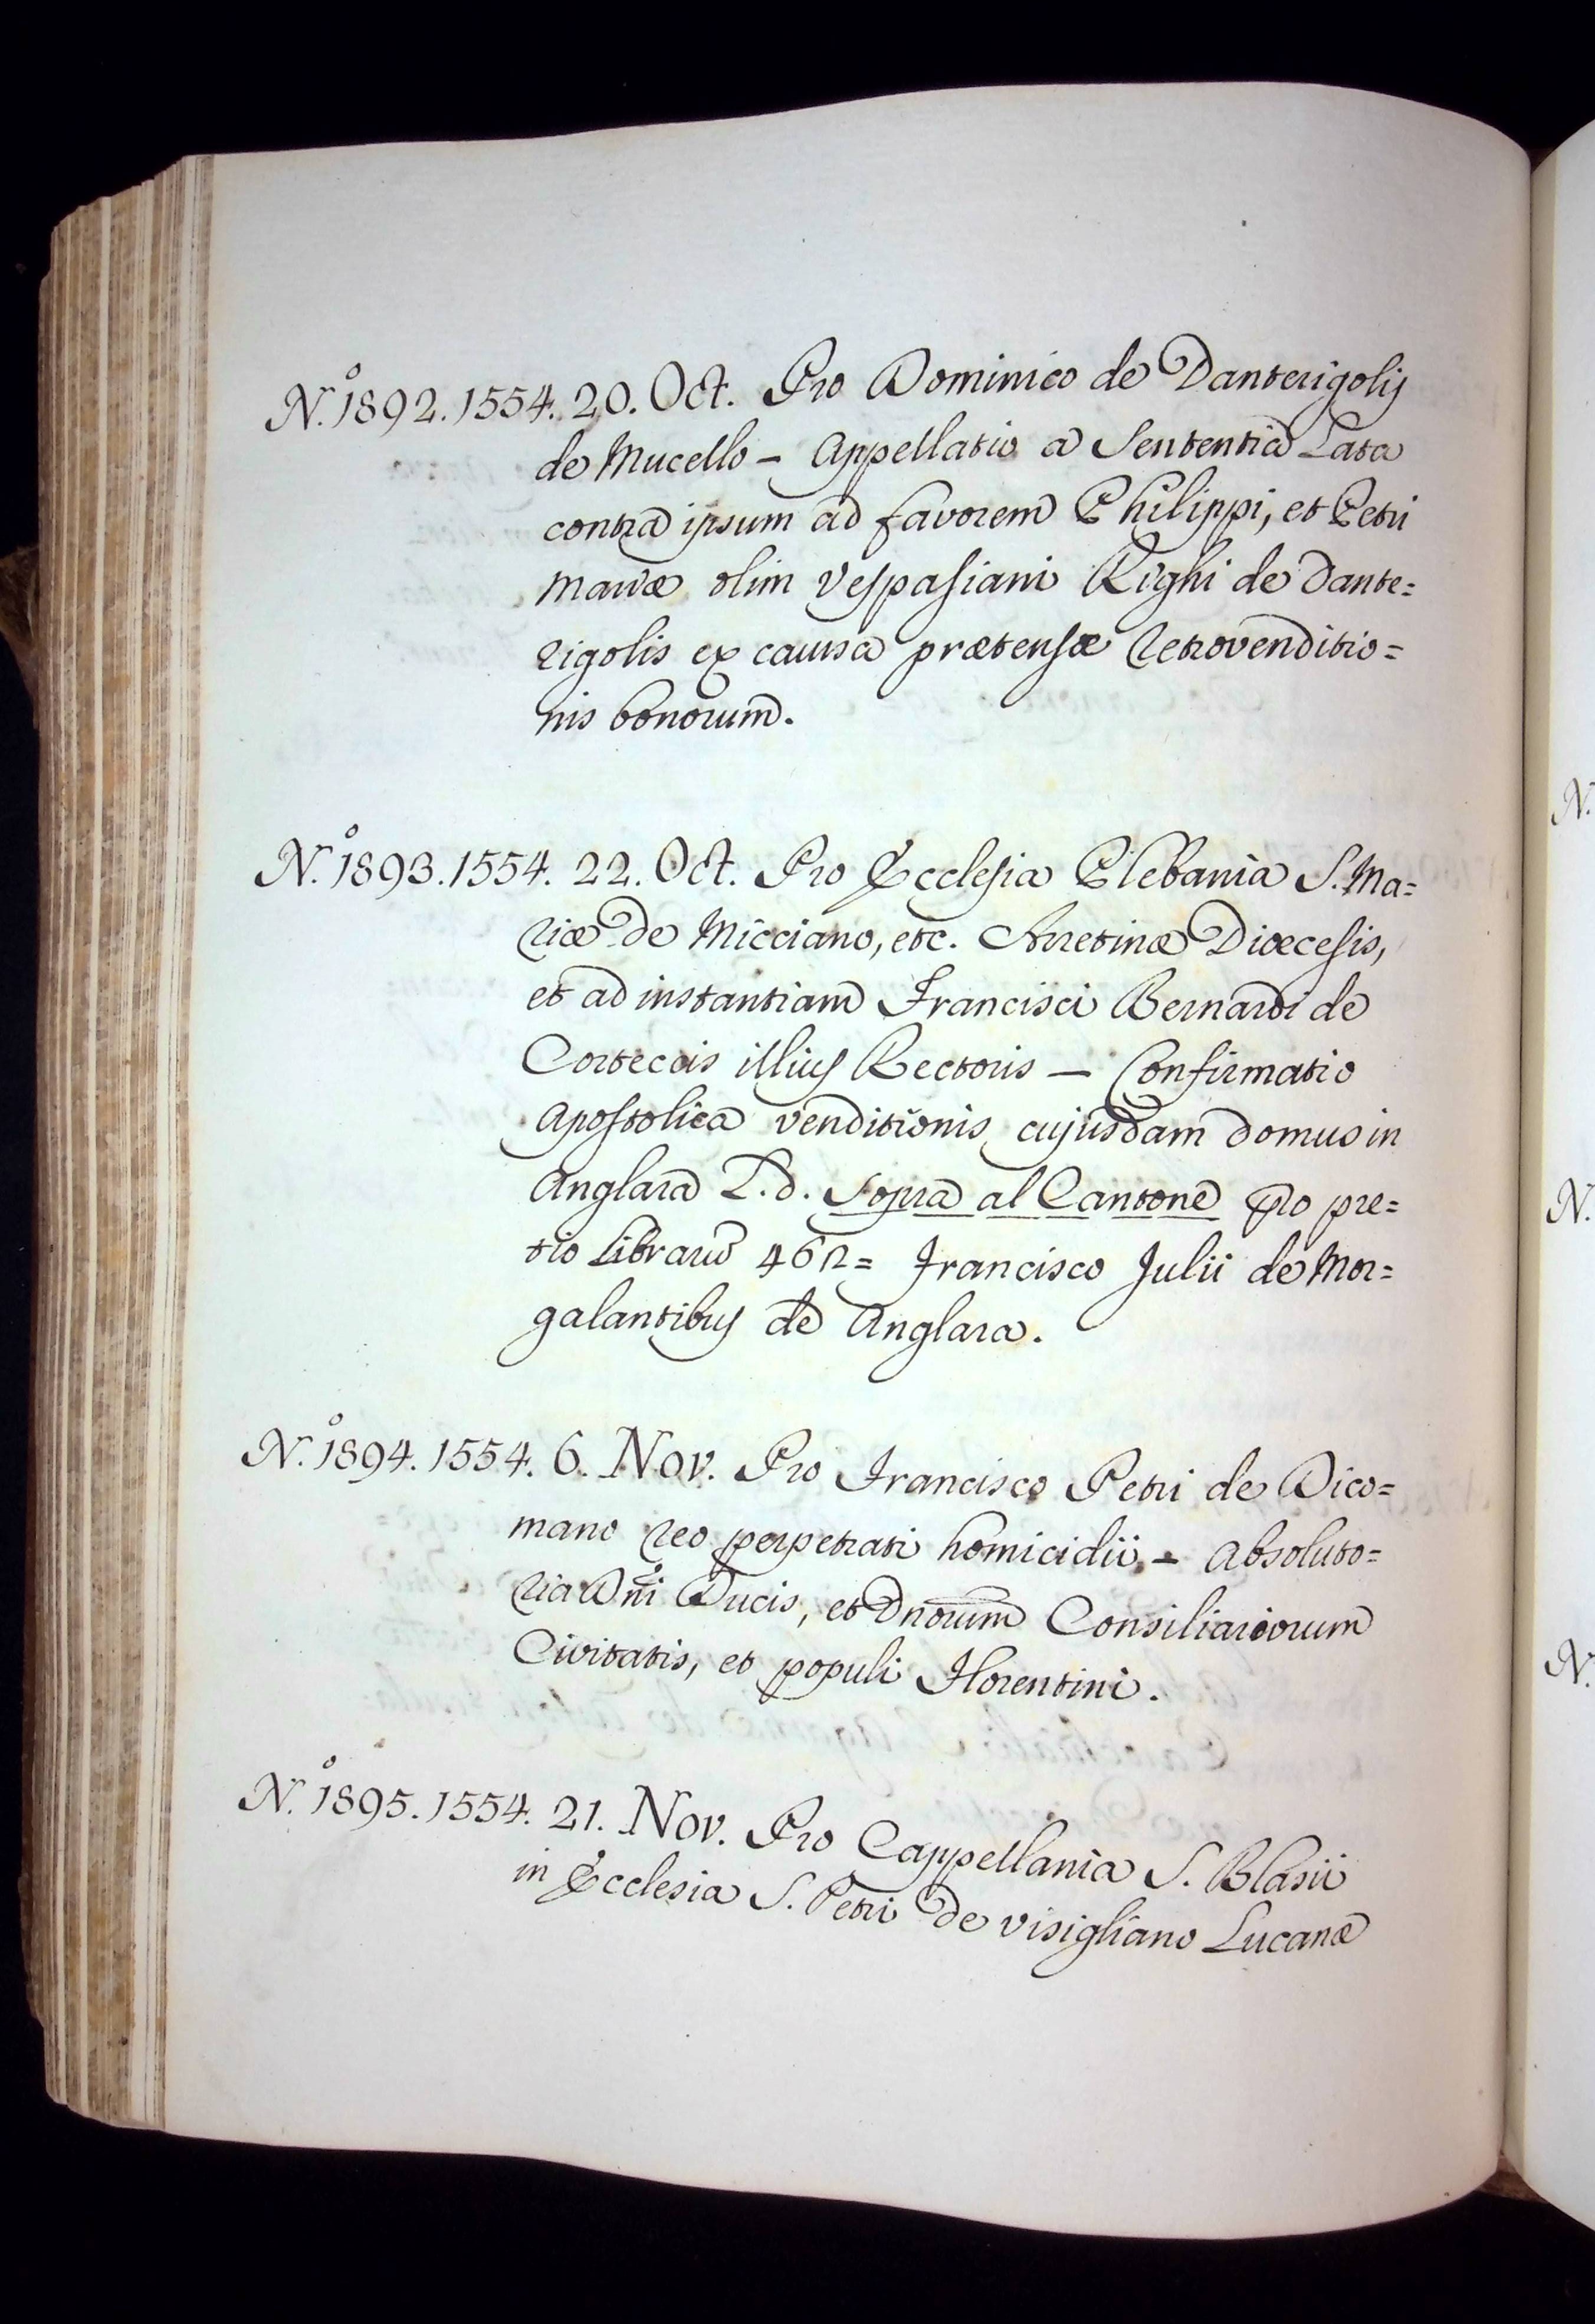 N.º 1892. 1554. 20. Oct. Pro Dominico de Danterigolis
de Mucello – Appellatio a Sententia Lata
contra ipsum ad favorem Philippi, et Petri
Mariæ olim Vespasiani Righi de Dante=
rigolis ex causa prætensæ retrovenditio=
nis bonorum.
N.º 1893. 1554. 22. Oct. Pro Ecclesia Plebania S. Ma=
riæ de Micciano, etc. Arretinæ Diœcesis,
et ad instantiam Francisci Bernardi de
Corteccis illius Rectoris – Confirmatio
Apostolica venditionis cujusdam domus in
Anglara L.d. Sopra al Cantone pro pre=
tio Librarũ 462= Francisco Julii de Mor=
galantibus de Anglara.
N.º 1894. 1554. 6. Nov. Pro Francisco Petri de Dico=
mano reo perpetrati homicidii. – Absoluto=
ria Dñi Ducis, et Dnorum Consiliariorum
Civitatis, et populi Florentini.
N.º 1895. 1554. 21. Nov. Pro Cappellania S. Blasii
in Ecclesia S. Petri de Visigliano Lucanæ
N.
N.
N.